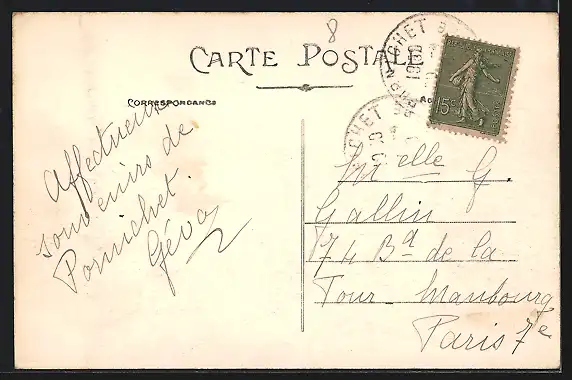 8
CARTE POSTALE
CORRESPONDANCE
Affectueux
souvenirs de
Pornichet.
Géva
PORNICHET
15c
Melle G.
Gallin
74 Bd de la
Tour-Maubourg
Paris 7e